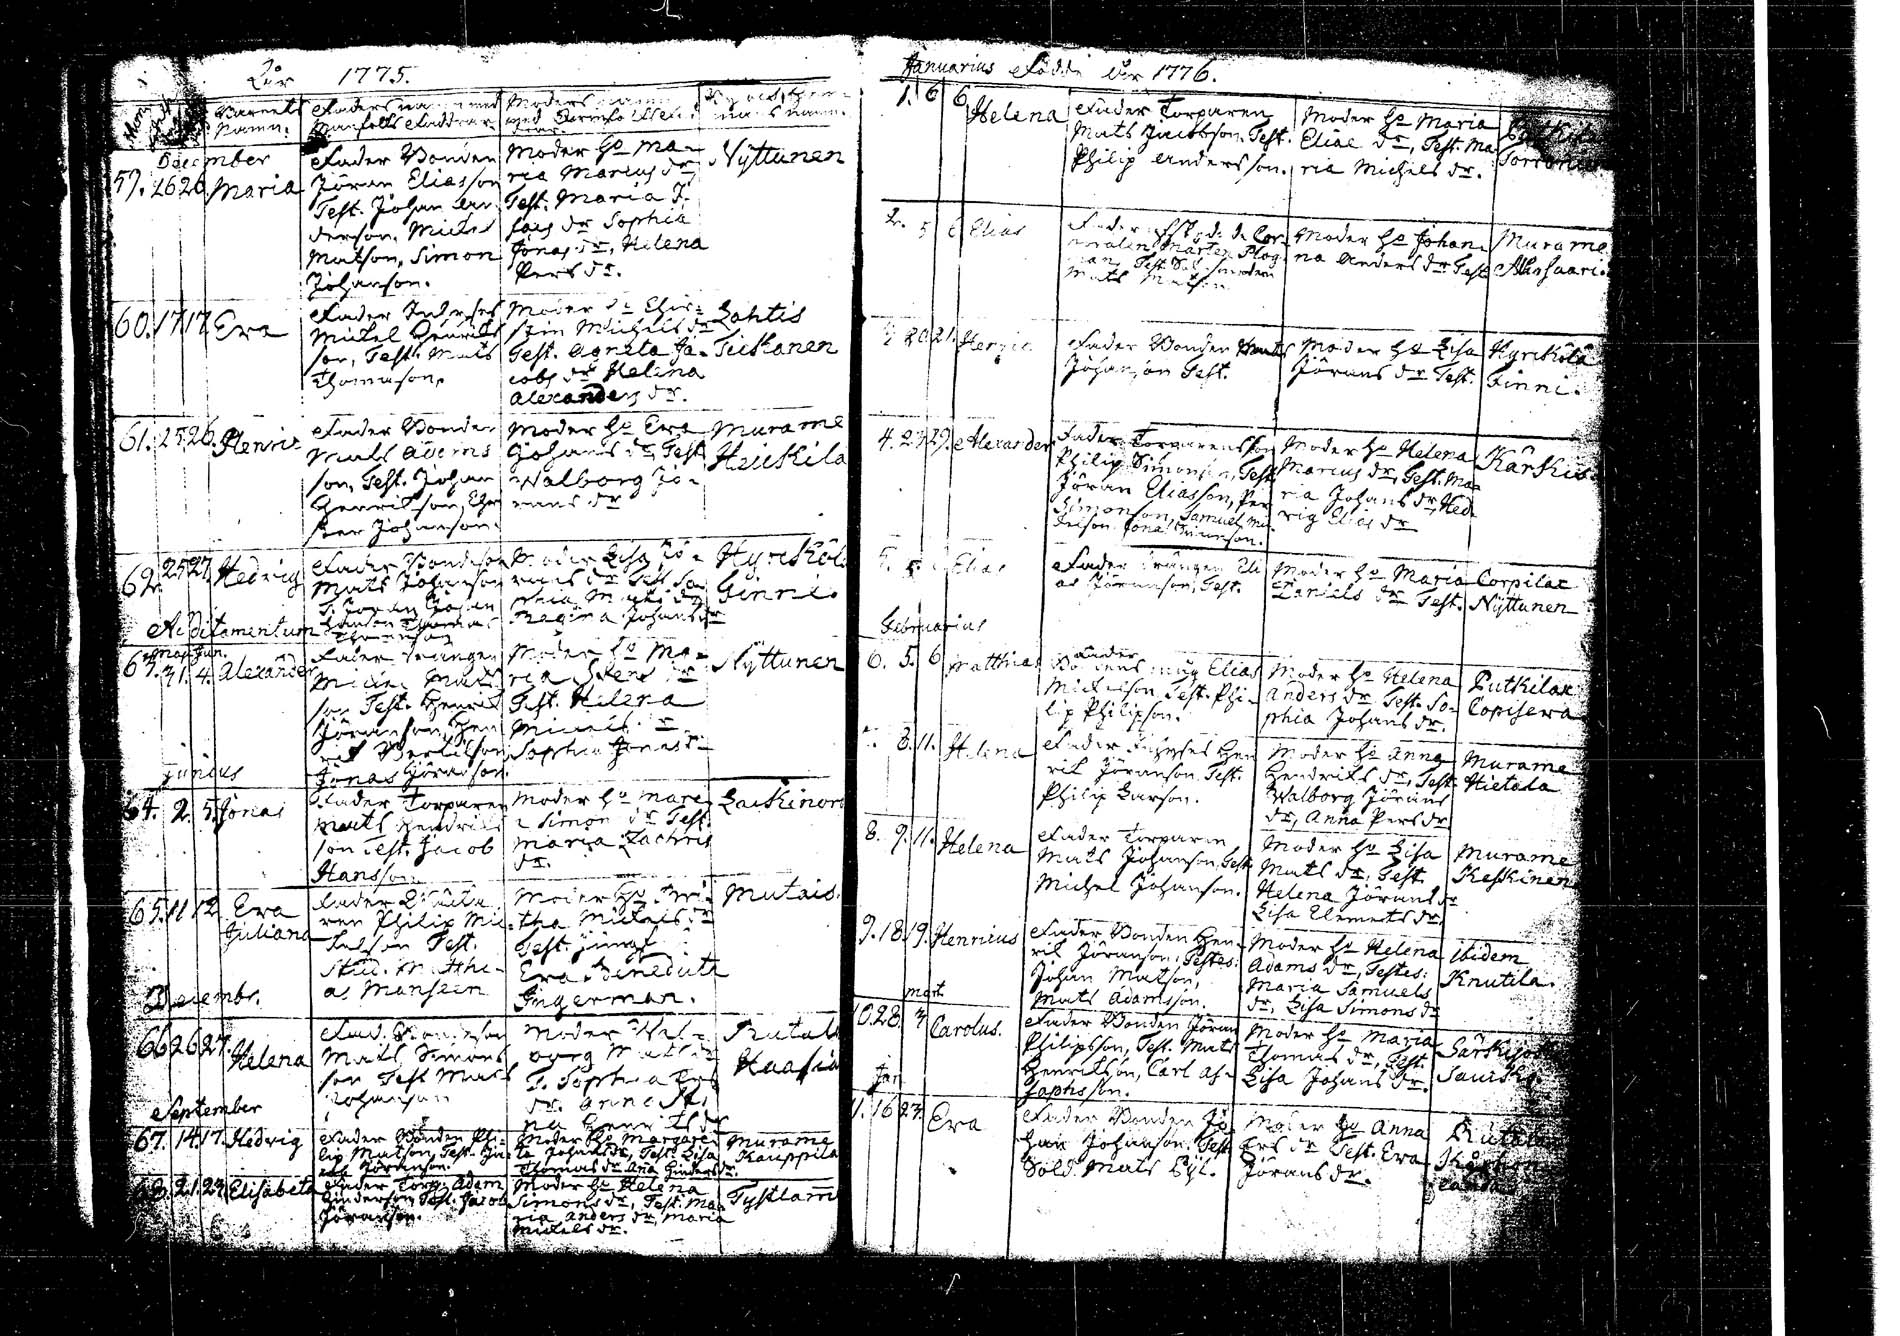 År 1775.
Barnets Namn.
Faders namn med
Moders namn
December
59. 26 26 Maria
Fader Bonden
Jöran Eliasson
Test. Johan An-
derson, Michel
Matson, Simon
Johanson.
Moder Ho Ma-
ria Marcus dr
Test. Maria
dr Sophia
Jonas dr, Helena
Pers dr.
Nyttunen
60. 17 17 Eva
Fader
Michel Henrics
son, Test. Mats
Thomason.
Moder
Michels dr
Test. Agneta Ja-
cobs dr Helena
Alexanders dr.
Lahtis
Tiikanen
61. 25 26. Henric
Fader Bonden
Mats Adams
son, Test. Johan
Henricson,
Johanson.
Moder Ho Eva
Johans dr, Test.
Walborg Jö-
rans dr
Murame
Heickila
62. 25 27 Hedvig
Fader Bondeson
Mats Johanson
T. Jöran Johan
Moder Lisa Jö-
rans dr Test. So-
phia Mats dr
Regina Johans dr
Hyrckölä
Ginni.
Additamentum
Maj. Jun.
63. 31. 4. Alexander
Fader Drängen
Michel Mats
son Test. Henric
Jöranson, Hen
ric Bertilson
Jonas Jöranson.
Moder Ho Ma-
ria dr
Test. Helena
Michels dr
Sophia Jonas dr
Nyttunen
Junius
64. 2. 5. Jonas
Fader Torparen
Mats Hendrics
son Test. Jacob
Hansson
Moder Ho Mari-
a Simons dr Test.
Maria Zachris
dr.
65. 11 12. Eva
Juliana
Fader
ren Philip Mic-
kelson Test.
Stud. Matthi-
as Monseen
Moder Ho
tha Michels dr
Test. Jungf
Eva Benedicta
Ingerman.
Mutais.
Decembr.
66 26 27. Helena
Fad. Bondeson
Mats Simons
son Test Mats
Johanson
Moder Wal-
borg Matts dr
T. Sophia Ers
dr. Anna
na Henrics dr
Rutala
Haasia
September
67. 14 17. Hedvig
Fader Bonden Phi-
lip Matson, Test. Hin-
ric Jöranson.
Moder Ho Margare-
ta Johans dr, Test. Lisa
Thomas dr Ana Hinders dr.
Murame
Kauppila
68. 21. 24. Elisabeta
Fader Torp. Adam
Hinderson, Test. Jacob
Jöranson.
Moder Ho Helena
Simons dr, Test. Ma-
ria Anders dr, Maria
Michels dr.
Tystlam
Januarius Födde År 1776.
1. 6 6 Helena
Fader Torparen
Mats Jacobson, Test.
Philip Andersson.
Moder Ho Maria
Eliae dr, Test. Ma
ria Michels dr.
2. 5 6 Elias
Fader Afskede de Cor-
poralen Mårten Plog-
man, Test. Soldaten
Mats Matson
Moder Ho Johan-
na Anders dr Test
Murame
Ahosaari.
3. 20 21. Henric
Fader Bonden Mats
Johanson Test.
Moder Ho Lisa
Jörans dr Test.
Hyrckölä
Ginni.
4. 27 29. Alexander
Fader Torparensson
Philip Simonson, Test.
Jöran Eliasson, Per
Simonson, Samuel Mi-
chelson, Jonas Simonson.
Moder Ho Helena
Marcus dr, Test. Ma-
ria Johans dr, Hed-
vig Elias dr
Kärkis
5. 5 Elias
Fader Drängen Eli
as Jöranson, Test.
Moder Ho Maria
Daniels dr Test.
Corpilax
Nyttunen
Februarius
6. 5. 6 Matthias
Fader
Bondens måg Elias
Mickelson, Test. Phi-
lip Philipson.
Moder Ho Helena
Anders dr Test. So-
phia Johans dr.
Putkilax
Copiserva
7. 8. 11. Helena
Fader Inhyses Hen
ric Jöranson Test.
Philip Larson.
Moder Ho Anna
Hendrics dr, Test.
Walborg Jörans
dr, Anna Pers dr
Murame
Hietala
8. 9. 11. Helena
Fader Torparen
Mats Johanson, Test.
Michel Johanson.
Moder Ho Lisa
Mats dr, Test.
Helena Jörans dr
Lisa Clements dr.
Murame
Keskinen
9. 18 19. Henricus
Fader Bonden Hen-
ric Jöranson, Testes:
Johan Matson,
Mats Adamsson.
Moder Ho Helena
Adams dr, Testes:
Maria Samuels
dr, Lisa Simons dr
ibidem
Knutila.
Mart.
10. 28. 3 Carolus.
Fader Bonden Jöran
Philipsson, Test. Mats
Henricson, Carl
Moder Ho Maria
Thomas dr, Test.
Lisa Johans dr.
Jan
11. 16 23. Eva
Fader Bonden Jo
han Johanson, Test.
Sold. Mats Pyl.
Moder Ho Anna
Ers dr Test. Eva
Jörans dr.